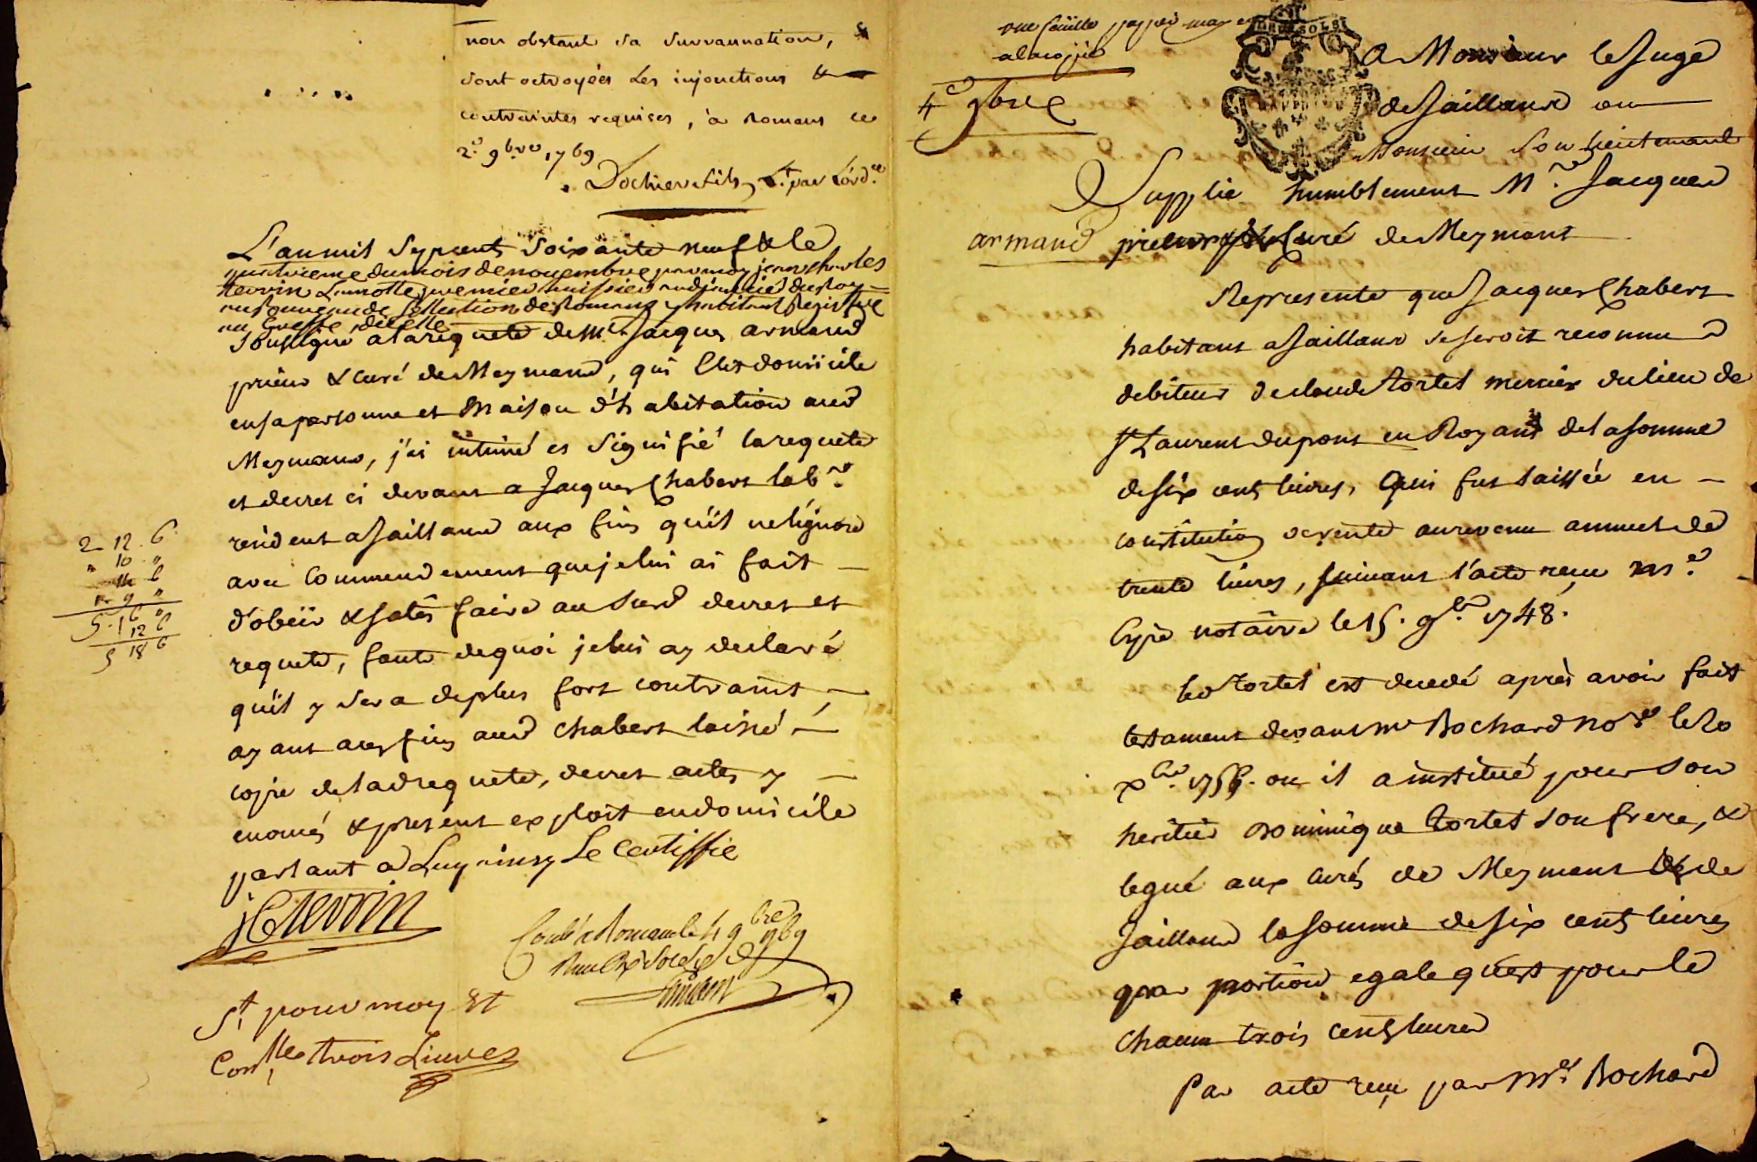 non obstant sa surrannation,
sont octroyées les injonctions &
contraintes requises, à Romans ce
2e 9bre 1769
Dochier fils,
L'an mil sept cents soixante neuf & le
quatrieme du mois de novembre par moy jean charles
terrin Lamotte premier huissier audiancier du Roy
en l'election de Romans y habitant Registre
au Greffe d'icelle
soussigné a la requete de Mre Jacques armand
prieur & curé de Meymans, qui Elit domicile
en sa personne et maison d'habitation aud
Meymans, j'ai intimé et signifié la requete
et decret ci devant a Jacques Chabert labr
resident a Jaillans aux fins qu'il ne l'ignore
avec Commendement que je lui ai fait
d'obeïr & satisfaire au susd decret et
requete, faute de quoi je lui ay declaré
qu'il y sera de plus fort contraint,
ayant aux fins aud Chabert laissé
copie de lad requete, decret actes y
enoncés & present exploit en domicile
parlant a Luy ainsy Le Certiffie
jCterrin
Conlé a Romans le 4 9bre 1769
St pour moy Et
Conlle trois Livres
2 12 6
" 10 "
5 18 6
une feuille pappié
a la copie
4e 9bre
A Monsieur le Juge
de Jaillans ou
Monsieur son lieutenant
Supplie humblement Mre Jacques
armand prieur & Curé de Meymans
Represente que Jacques Chabert
habitant a Jaillans se seroit reconnu
debiteur de claude Tortel mercier du lieu de
St Laurens du pont en Royans de la somme
de six cents livres, Qui fut laissée en
constitution de rente au revenu annuel de
trente livres, suivant l'acte reçu Me
notaire le 15. 9bre 1748.
led Tortel est decedé après avoir fait
testament devant Me Bochard nore le 20
xbre 175 ou il a institué pour son
heritier Dominique Tortel son frere, &
legué aux curés de Meymans & de
Jaillans la somme de six cents livres
par portion egale qu'est pour le
chacun trois cents livres
Par acte reçu par Me Bochard